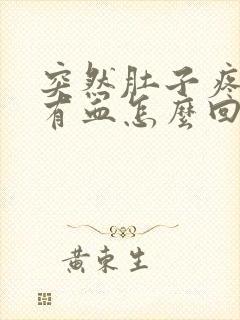 突然肚子疼
有血怎麼回
黃東生